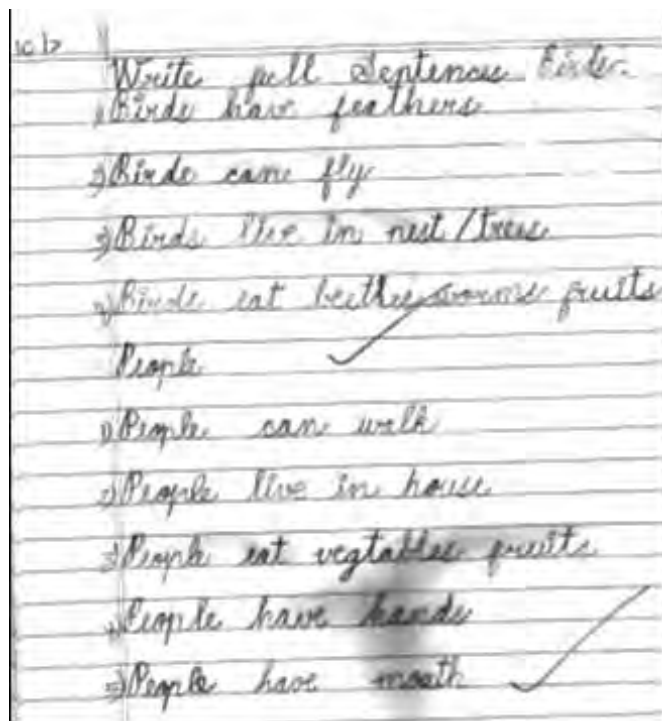 Write full Sentences Birds.
1) Birds have feathers
2) Birds can fly
3) Birds live in nest/trees
4) Birds eat beetles worms fruits
People
1) People can walk
2) People live in house
3) People eat vegtables fruits
4) People have hands
5) People have mouth